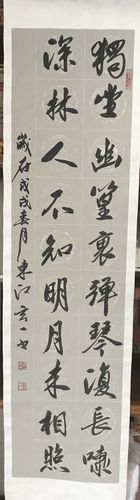 獨坐幽篁裏彈琴復長嘯
深林人不知明月来相照
歲在戊戌春月東江